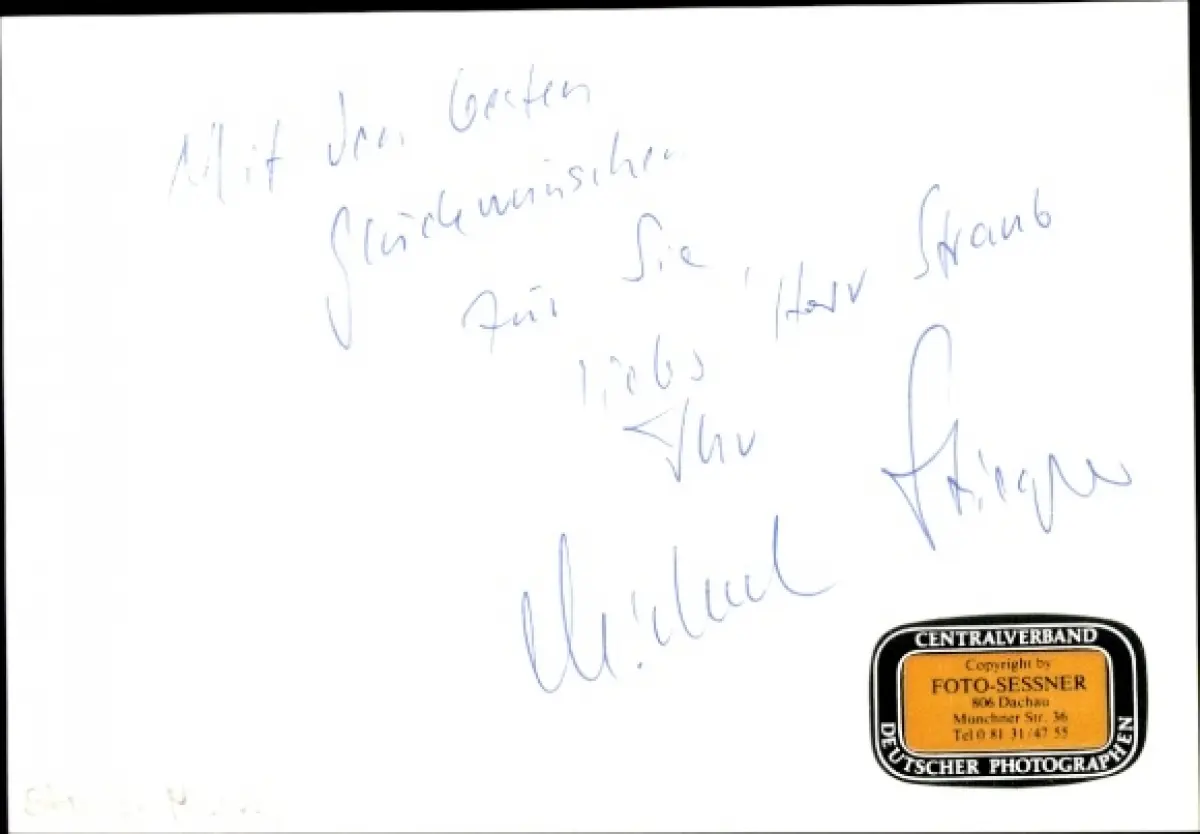 Mit den besten
Glückwünschen
für Sie, Herr Straub
liebs
Ihr
Michael
CENTRALVERBAND
Copyright by
FOTO-SESSNER
806 Dachau
Münchner Str. 36
Tel 0 81 31/47 55
DEUTSCHER PHOTOGRAPHEN